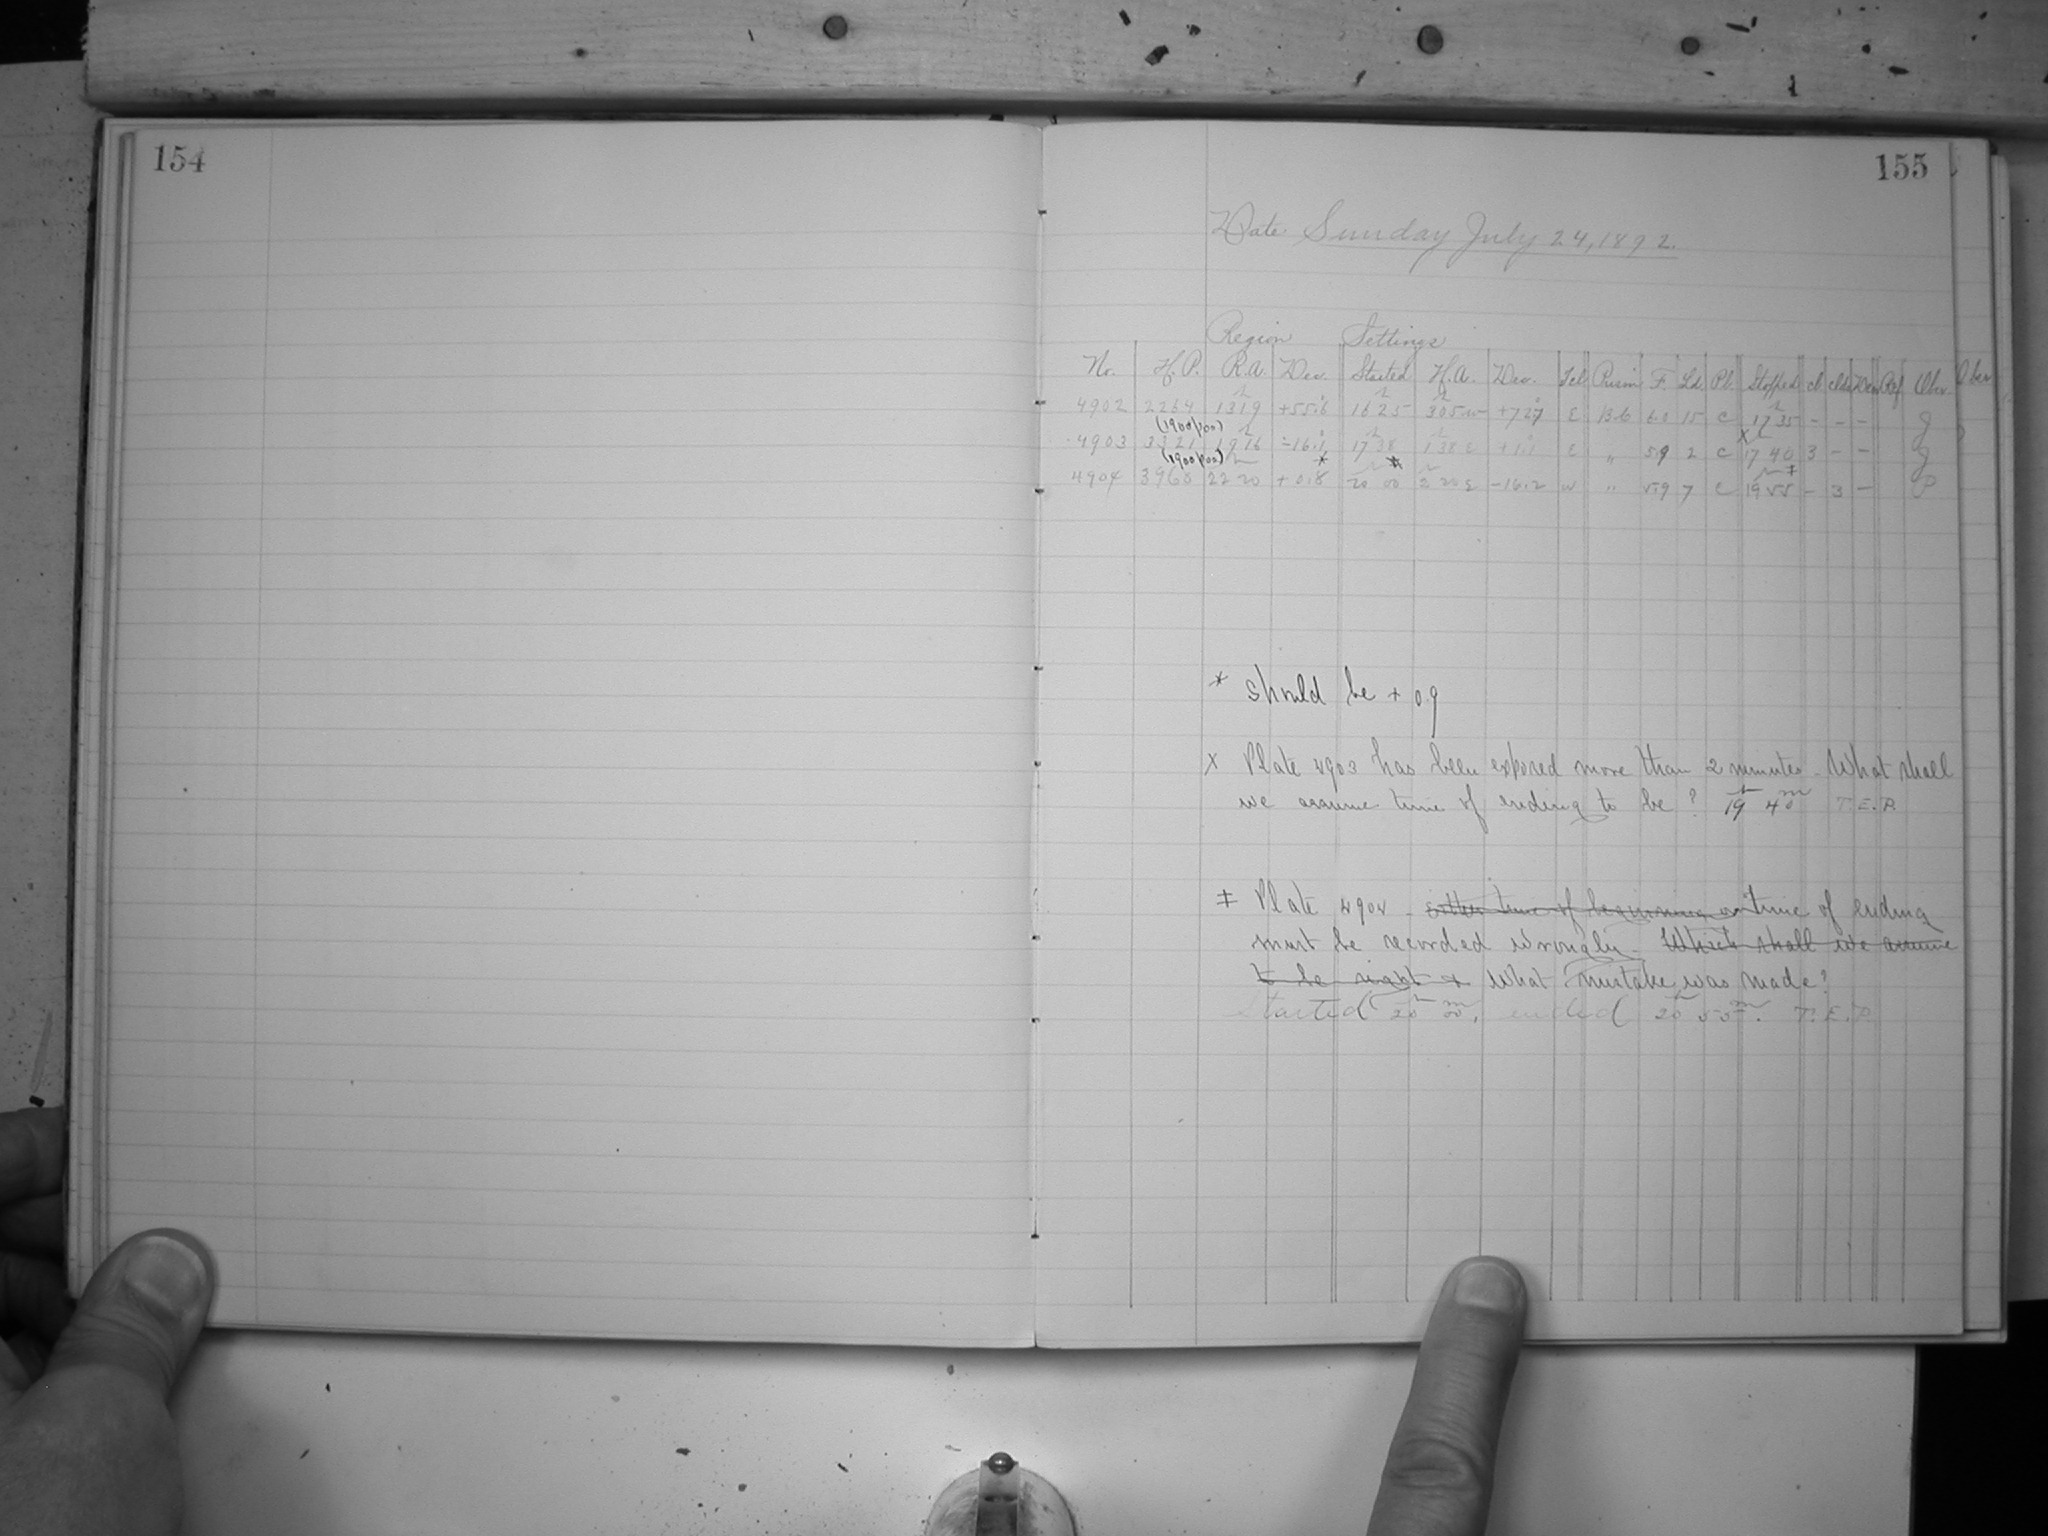 154
155
Date Sunday July 24, 1892.
Region Settings
No. H.P. R.A. Dec. Started H.A. Dec. Tel Prism F. Ld. Pl. Stopped cl. clds Dew Ref Obs. Obser
4902 2264 13 19 +55.6 16 25 3 05 w +72.7 E B.6 6.0 15 C 17 35 - - - g
(1900/00) x
4903 3321 19 16 -16.1 17 38 1 38 E +1.1 E " 5.9 2 C 17 40 3 - - g
(1900/00) * ‡ ‡
4904 3960 22 20 +0.8 20 00 2 20 E -16.2 w " 5.9 7 C 19 55 - 3 - P
* Should be + 0.9
x Plate 4903 has been exposed more than 2 minutes - What shall
we assume time of ending to be? 19h 40m T.E.P.
‡ Plate 4904 - either time of beginning or time of ending
must be recorded wrongly - Which shall we assume
to be right & What mistake was made?
Started 20h 00m, ended 20h 55m. T.E.P.